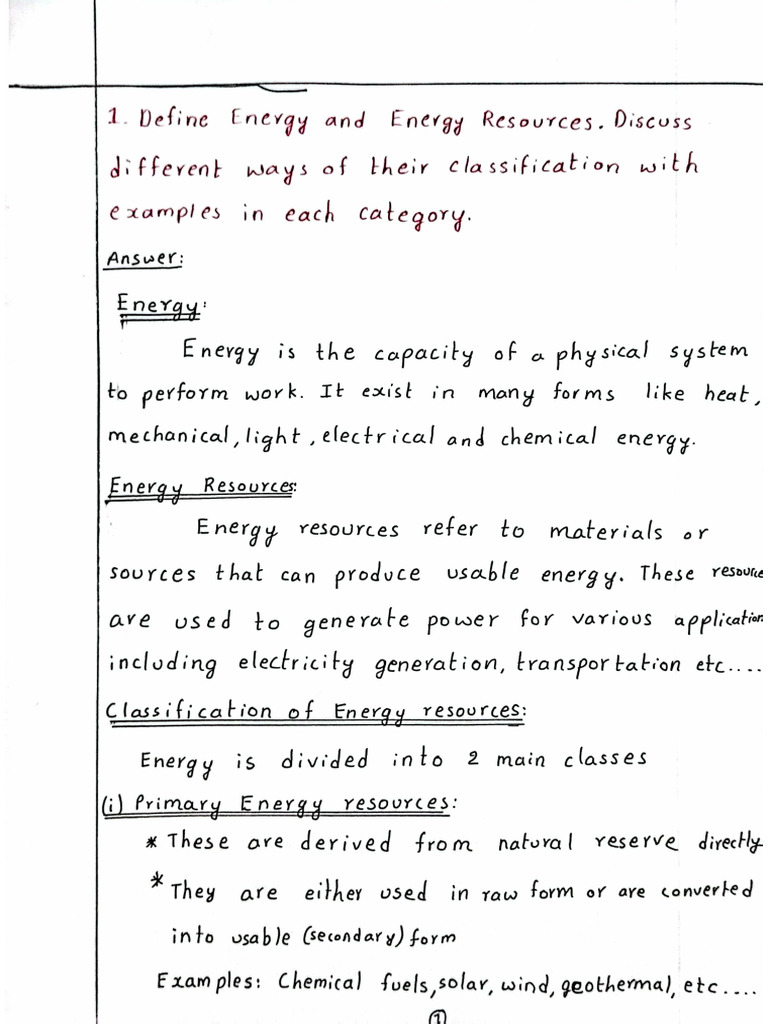 1. Define Energy and Energy Resources. Discuss
different ways of their classification with
examples in each category.
Answer:
Energy:
Energy is the capacity of a physical system
to perform work. It exist in many forms like heat,
mechanical, light, electrical and chemical energy.
Energy Resources:
Energy resources refer to materials or
sources that can produce usable energy. These resource
are used to generate power for various application
including electricity generation, transportation etc....
Classification of Energy resources:
Energy is divided into 2 main classes
(i) Primary Energy resources:
* These are derived from natural reserve directly
* They are either used in raw form or are converted
into usable (secondary) form
Examples: Chemical fuels, solar, wind, geothermal, etc....
1